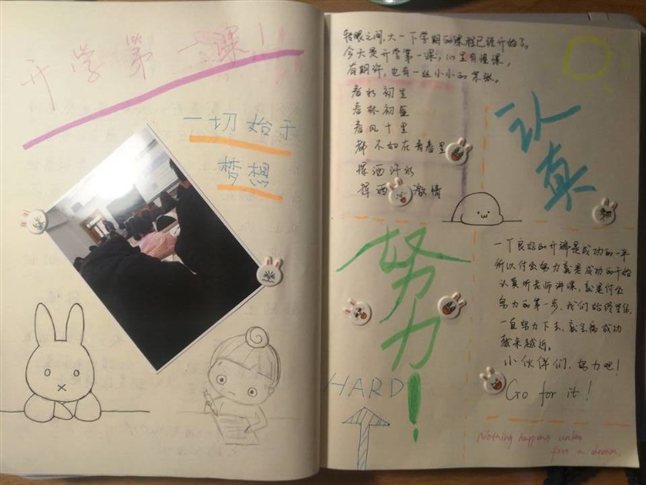 开学第一课!
一切始于
梦想
转眼之间,大一下学期的课程已经开始了。
今天是开学第一课,心里有憧憬,
有期许,也有一丝小小的紧张。
春水初生
春林初盛
春风十里
都不如在青春里
挥洒汗水
挥洒激情
认真
努力!
HARD
一个良好的开端是成功的一半
所以什么努力就是成功的开始
认真听老师讲课,就是什么
努力的第一步,我们始终坚信
一直努力下去,就会离成功
越来越近。
小伙伴们,努力吧!
Go for it!
Nothing happens unless
first a dream.